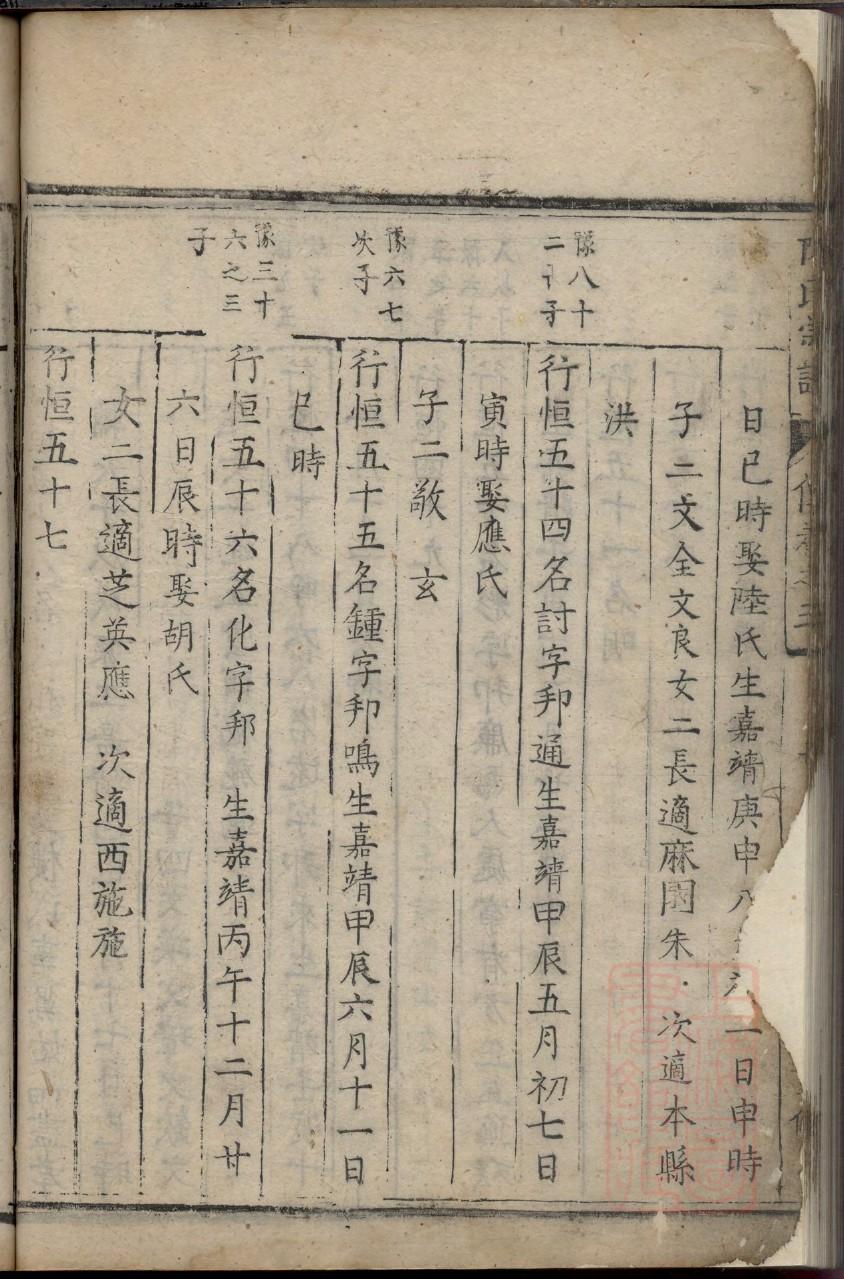 日巳時娶陸氏生嘉靖庚申八 一日申時
子二文全文良女二長適麻園朱 次適本縣
洪
豫八十
二十子
行恒五十四名討字邦通生嘉靖甲辰五月初七日
寅時娶應氏
子二敬玄
豫六七
次子
行恒五十五名鍾字邦鳴生嘉靖甲辰六月十一日
巳時
豫三十
六之三
子
行恒五十六名化字邦 生嘉靖丙午十二月廿
六日辰時娶胡氏
女二長適芝英應 次適西施施
行恒五十七